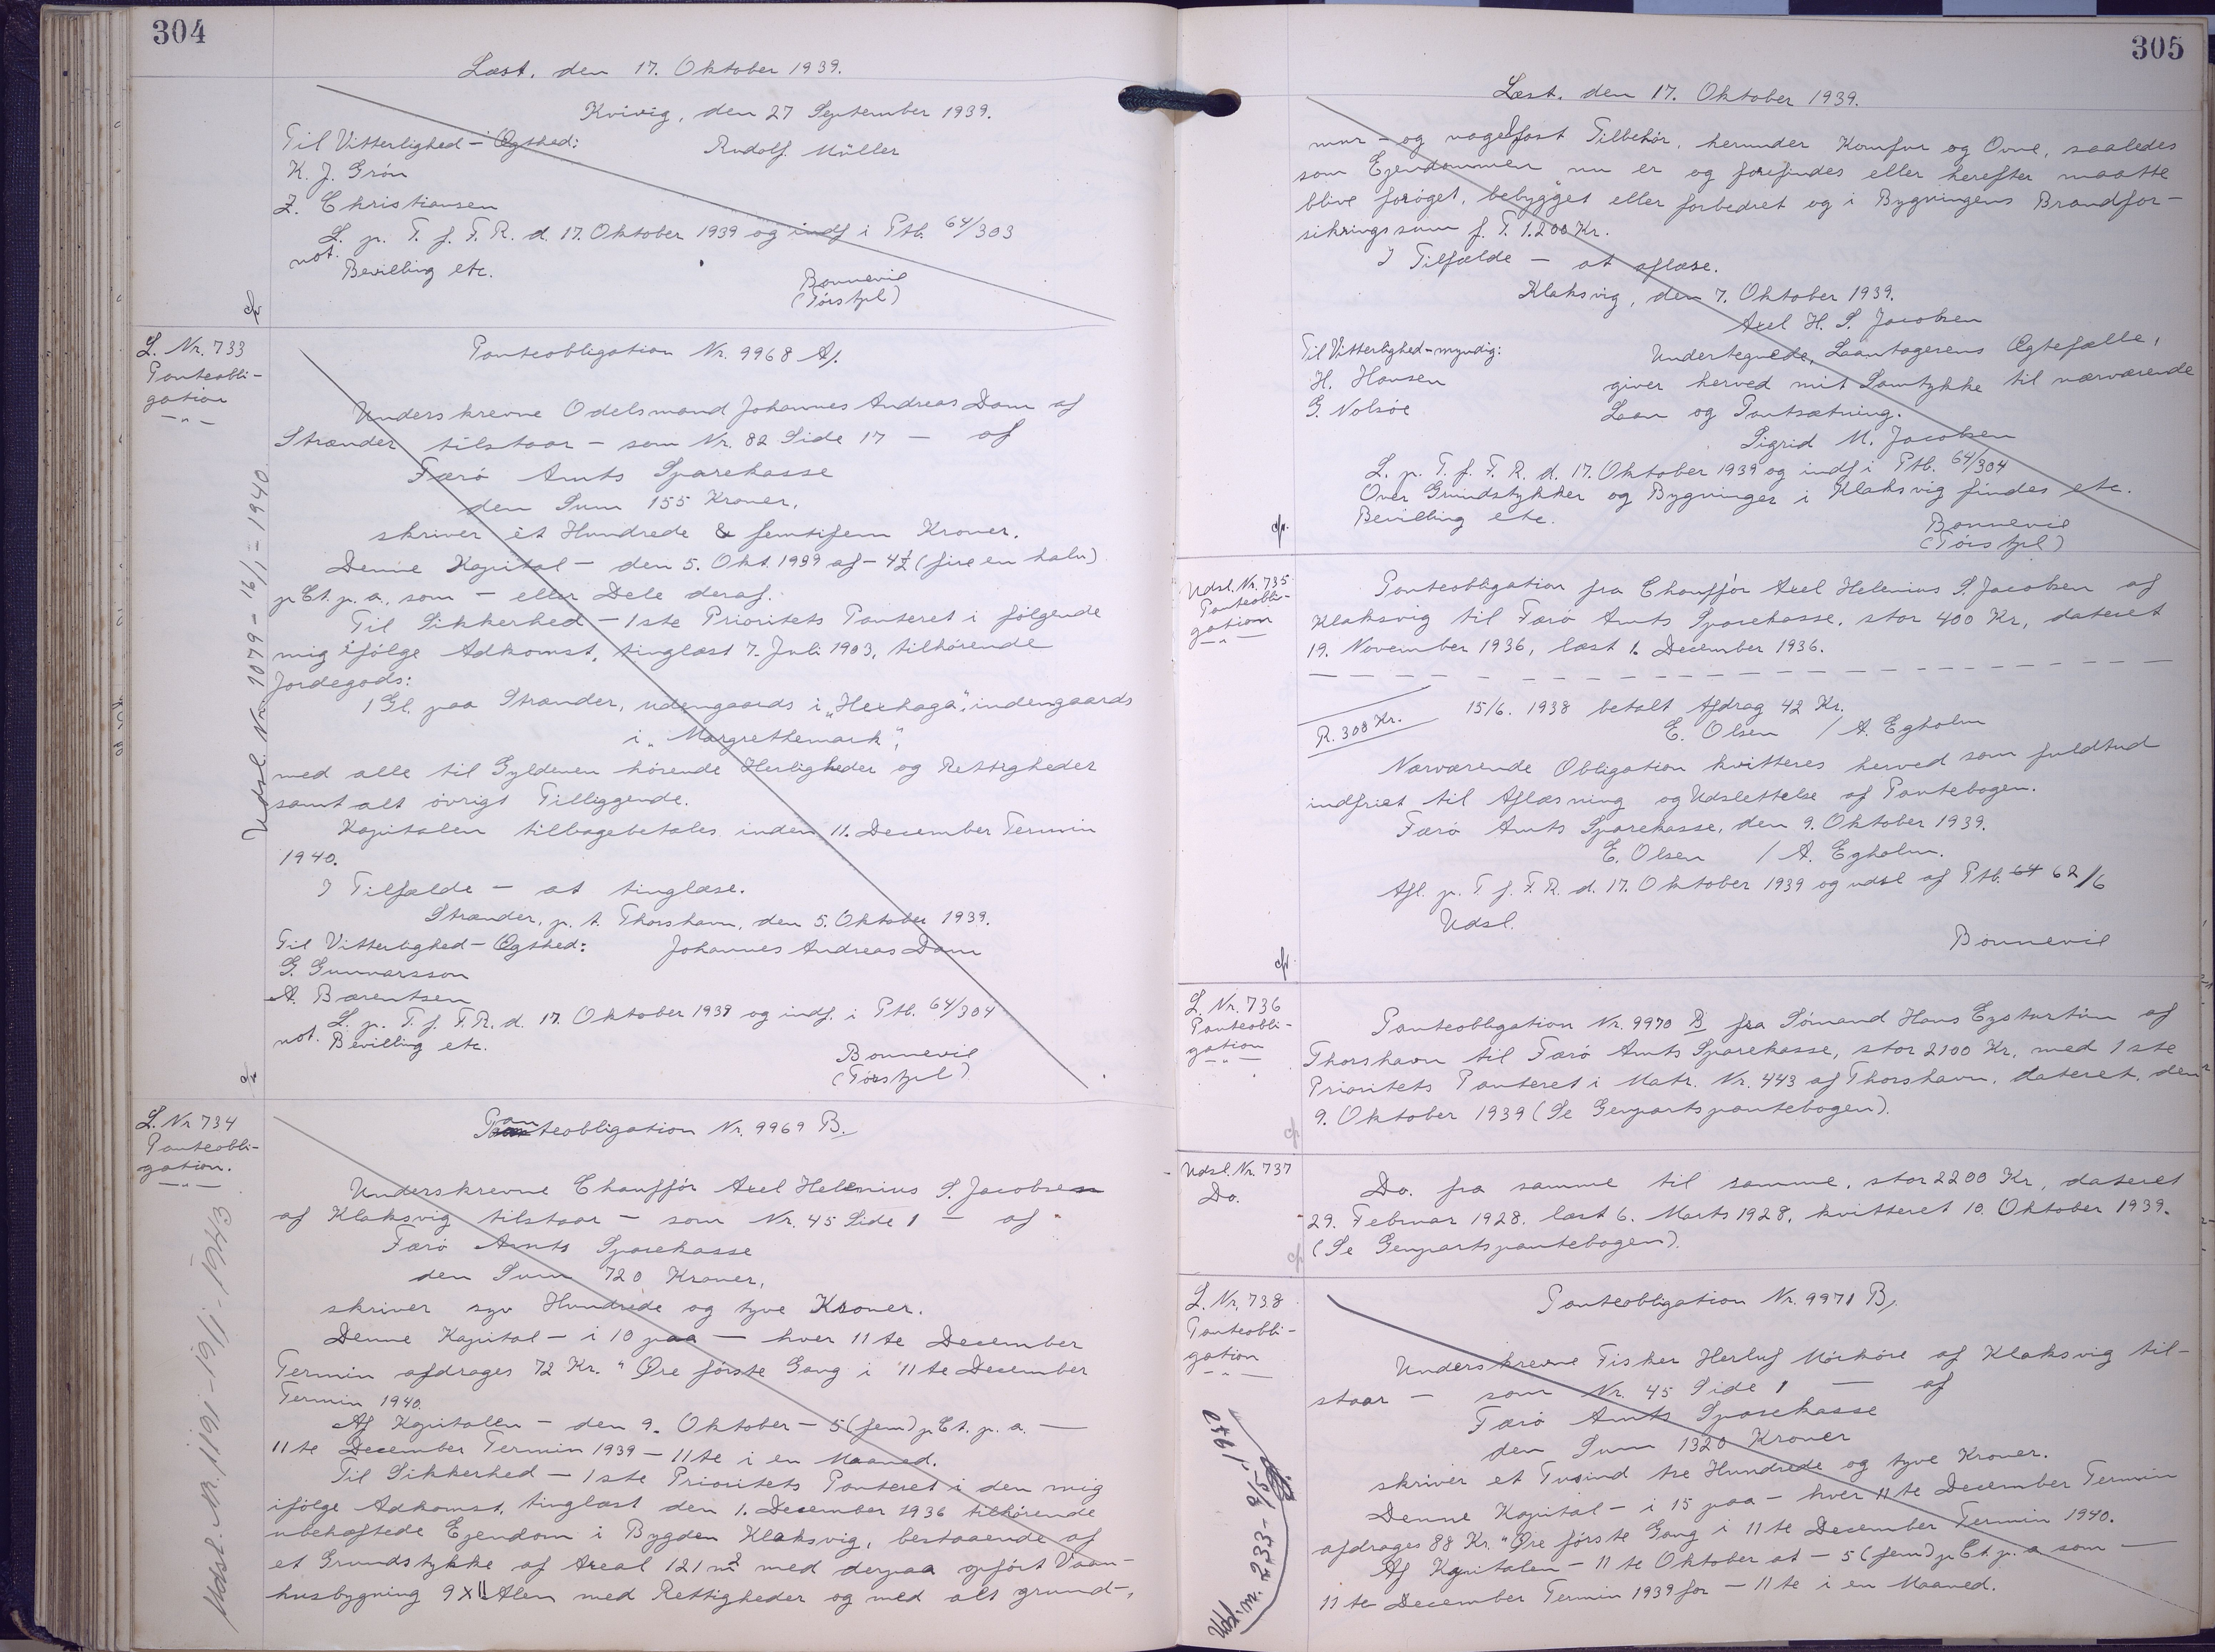 304
Læst. den 17. Oktober 1939.
Kvivig, den 27 September 1939.
Til Vitterlighed - Ægthed:
Rudolf Müller
K. J. Grön
Z. Christiansen
L. p. T. f. F. R. d. 17. Oktober 1939 og indf i Ptb. 64/303
not. Bevilling etc.
Bonnevie
(Tórstpl)
L. Nr. 733
Panteobli-
gation
- " -
Udsl. Nr. 1079 - 16/1 - 1940
Panteobligation Nr. 9968 A/.
Underskrevne Odelsmand Johannes Andreas Dam af
Strænder tilstaar - som Nr. 82 Side 17 - af
Færö Amts Sparekasse
den Sum 155 Kroner,
skriver ét Hundrede & femtifem Kroner.
Denne Kapital - den 5. Okt. 1939 af - 4½ (fire en halv)
p Ct. p. a., som - eller Dele deraf.
Til Sikkerhed - 1ste Prioritets Panteret i følgende
mig ifölge Adkomst, tinglæst 7. Juli 1903, tilhörende
Jordegods:
1 Gl. paa Strænder, udengaards i "Hexhaga", indengaards
i "Margrethemark",
med alle til Gyldenen hörende Herligheder og Rettigheder
samt alt övrigt Tilliggende.
Kapitalen tilbagebetales inden 11. December Termin
1940.
I Tilfælde - at tinglæse.
Strænder, p. t. Thorshavn, den 5. Oktober 1939.
Til Vitterlighed - Ægthed:
Johannes Andreas Dam
G. Gunnarsson
A. Bærentsen
L. p. T. f. F. R. d. 17. Oktober 1939 og indf. i Ptb. 64/304
not. Bevilling etc.
Bonnevie
(Tórstpl)
L. Nr 734
Panteobli-
gation.
- " -
Udsl. Nr. 1191 - 19/1 - 1943
Panteobligation Nr. 9969 B.
Underskrevne Chaufför Axel Helenius S. Jacobsen
af Klaksvig tilstaar - som Nr. 45 Side 1 - af
Færö Amts Sparekasse
den Sum 720 Kroner,
skriver syv Hundrede og tyve Kroner.
Denne Kapital - i 10 paa - hver 11te December
Termin afdrages 72 Kr. " Øre förste Gang i 11te December
Termin 1940.
Af Kapitalen - den 9. Oktober - 5 (fem) p Ct. p. a. -
11te December Termin 1939 - 11te i en Maaned.
Til Sikkerhed - 1ste Prioritets Panteret i den mig
ifölge Adkomst, tinglæst den 1. December 1936 tilhörende
ubehæftede Ejendom i Bygden Klaksvig, bestaaende af
et Grundstykke af Areal 121 m² med derpaa opfört Vaan-
husbygning 9 x 11 Alen med Rettigheder og med alt grund-,
305
Læst. den 17. Oktober 1939.
mur - og nagelfast Tilbehör, herunder Komfur og Ovne, saaledes
som Ejendommen nu er og forefindes eller herefter maatte
blive foröget, bebygget eller forbedret og i Bygningens Brandfor-
sikringssum f. T. 1.200 Kr.
I Tilfælde - at aflæse.
Klaksvig, den 7. Oktober 1939.
Axel H. S. Jacobsen
Til Vitterlighed - myndig:
H. Hansen
G. Nolsöe
Undertegnede, Laantagerens Ægtefælle,
giver herved mit Samtykke til nærværende
Laan og Pantsætning.
Sigrid M. Jacobsen
L. p. T. f. F. R. d. 17. Oktober 1939 og indf i Ptb. 64/304
Over Grundstykker og Bygninger i Klaksvig findes etc.
Bevilling etc.
Bonnevie
(Tórstpl)
Udsl. Nr. 735
Panteobli-
gation
- " -
Panteobligation fra Chauffór Axel Helenius S. Jacobsen af
Klaksvig til Færö Amts Sparekasse, stor 400 Kr, dateret
19. November 1936, læst 1. December 1936.
R. 308 Kr.
15/6. 1938 betalt Afdrag 42 Kr.
E. Olsen / A. Egholm
Nærværende Obligation kvitteres herved som fuldtud
indfriet til Aflæsning og Udslettelse af Pantebogen.
Færö Amts Sparekasse, den 9. Oktober 1939.
E. Olsen / A. Egholm.
Afl. p. T f. F. R. d. 17. Oktober 1939 og udsl af Ptb. 64 62/6
Udsl.
Bonnevie
L. Nr. 736
Panteobli-
gation
- " -
Panteobligation Nr. 9970 B fra Sömand Hans Egsturtún af
Thorshavn til Færö Amts Sparekasse, stor 2100 Kr, med 1ste
Prioritets Panteret i Matr. Nr. 443 af Thorshavn, dateret, den
9. Oktober 1939 (Se Genpartspantebogen).
Udsl. Nr. 737
Do.
Do. fra samme til samme, stor 2200 Kr, dateret
29. Februar 1928, læst 6. Marts 1928, kvitteret 10. Oktober 1939.
(Se Genpartspantebogen).
L. Nr. 738
Panteobli-
gation
- " -
Udsl. nr. 233 - 8/5 1950
Panteobligation Nr. 9971 B/.
Underskrevne Fisker Herluf Mörköre af Klaksvig til-
staar - som Nr. 45 Side 1 - af
Færö Amts Sparekasse
den Sum 1320 Kroner
skriver et Tusind tre Hundrede og tyve Kroner.
Denne Kapital - i 15 paa - hver 11te December Termin
afdrages 88 Kr. " Øre förste Gang i 11te December Termin 1940.
Af Kapitalen - 11te Oktober at - 5 (fem) p Ct. p. a som -
11te December Termin 1939 for - 11te i en Maaned.